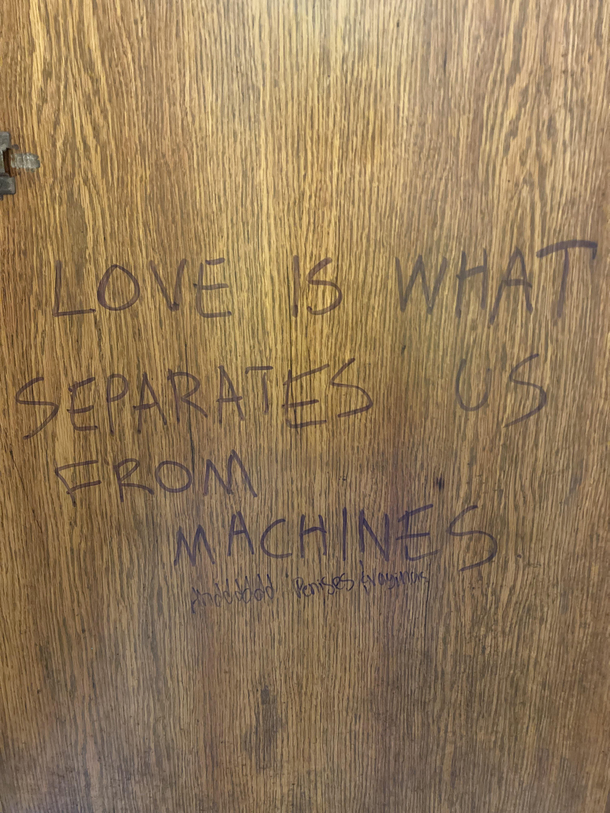 LOVE IS WHAT
SEPARATES US
FROM
MACHINES.
Andddddd Penises & vaginas